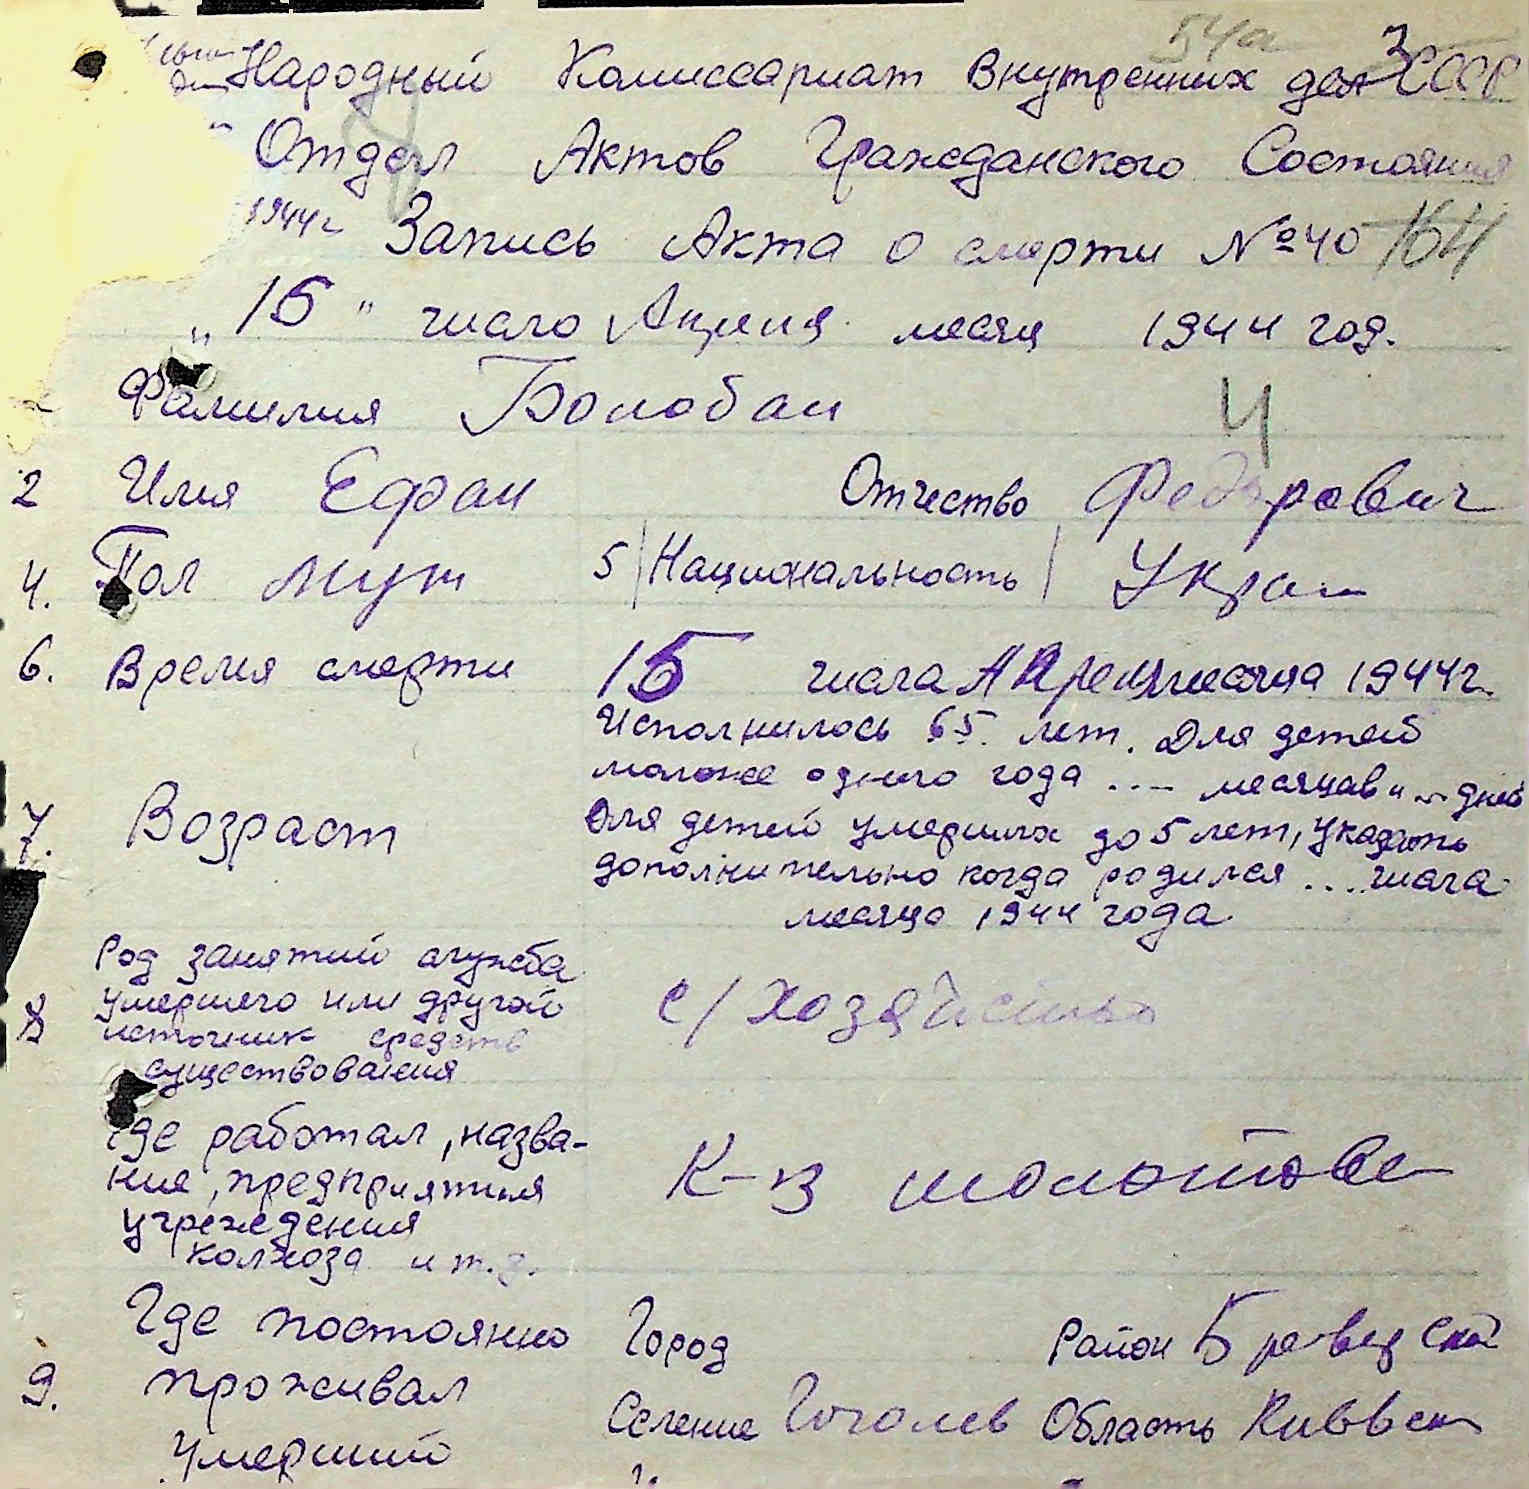 54а 3
Народный Комиссариат Внутренних дел СССР
Отдел Актов Гражданского Состояния
1944г Запись Акта о смерти №40 164
"15" число Апреля месяц 1944 год.
Фамилия Болобан
4
2 Имя Ефрам Отчество Федорович
4. Пол муж 5 Национальность Украин
6. Время смерти 15 числа Апреля месяца 1944г.
7. Возраст
Исполнилось 65 лет. Для детей
моложе одного года .... месяцав и ... дней
Для детей умерших до 5 лет, указать
дополнительно когда родился .... числа
месяца 1944 года.
8 Род занятий служба
умершего или другой
источник средств
существования
с/хозяйство
Где работал, назва-
ние, предприятия
учреждения
колхоза и т.д.
К-з Молотова
9. Где постоянно
проживал
умерший
Город Район Бровар ской
Селение Гоголев Область Киевск